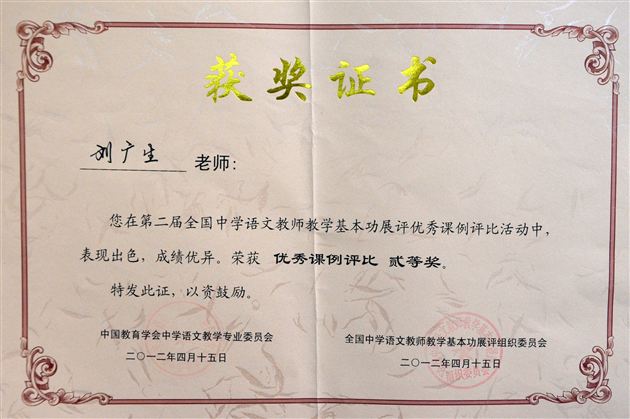 获奖证书
刘广生 老师：
您在第二届全国中学语文教师教学基本功展评优秀课例评比活动中，
表现出色，成绩优异。荣获 优秀课例评比 贰等奖。
特发此证，以资鼓励。
中国教育学会中学语文教学专业委员会
二〇一二年四月十五日
全国中学语文教师教学基本功展评组织委员会
二〇一二年四月十五日